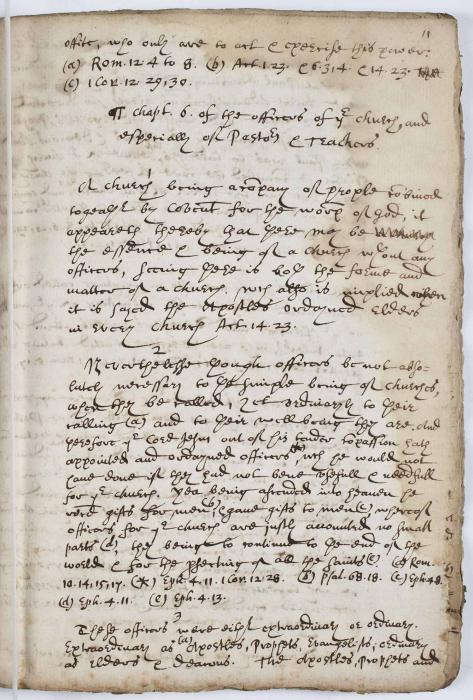 11
office, who only are to act & exercise this power.
(a) Rom. 12. 4 to 8. (b) Act. 1. 23. & 6. 3, 4. & 14. 23.
(c) 1 Cor. 12. 29, 30.
¶ Chapt. 6. of the officers of yᵉ church, and
especially of Pastoʳs & Teachers
A church being a company of people combined
togeather by covenᵗ for the worsᵖ of god, it
appeareth thereby that there may be
the essence & being of a church wᵗʰout any
officers, seeing there is both the forme and
matter of a church, wᶜʰ also is implied when
it is sayed the Apostles ordayned Elders
in every church Act. 14. 23.
2
Neverthelesse though officers be not abso-
lutly necessary to the simple being of churches,
when they be called, Yet ordinarily to their
calling (a) and to their well being they are. And
therefore yᵉ Lord Jesus out of his tender compassion hath
appointed and ordayned officers(*), wᶜʰ he would not
have done if they had not bene usefull & needfull
for yᵉ church. Yea being ascended into heaven he
recd gifts for men(b) & gave gifts to men(c) whereof
officers for yᵉ church are justly accounted no small
parts(d), they being to continue to the end of the
world & for the pfecting of all the saints(e). (a) Rom.
10. 14, 15, 17. (*) Eph. 4. 11. 1 Cor. 12. 28. (b) psal. 68. 18. (c) Eph. 4. 8.
(d) Eph. 4. 11. (e) Eph. 4. 13.
3
These officers were either extraordinary or ordinary.
Extraordinary as (a) Apostles, Prophets, Evangelists; ordinary
as Elders & deacons. The Apostles, Prophets and